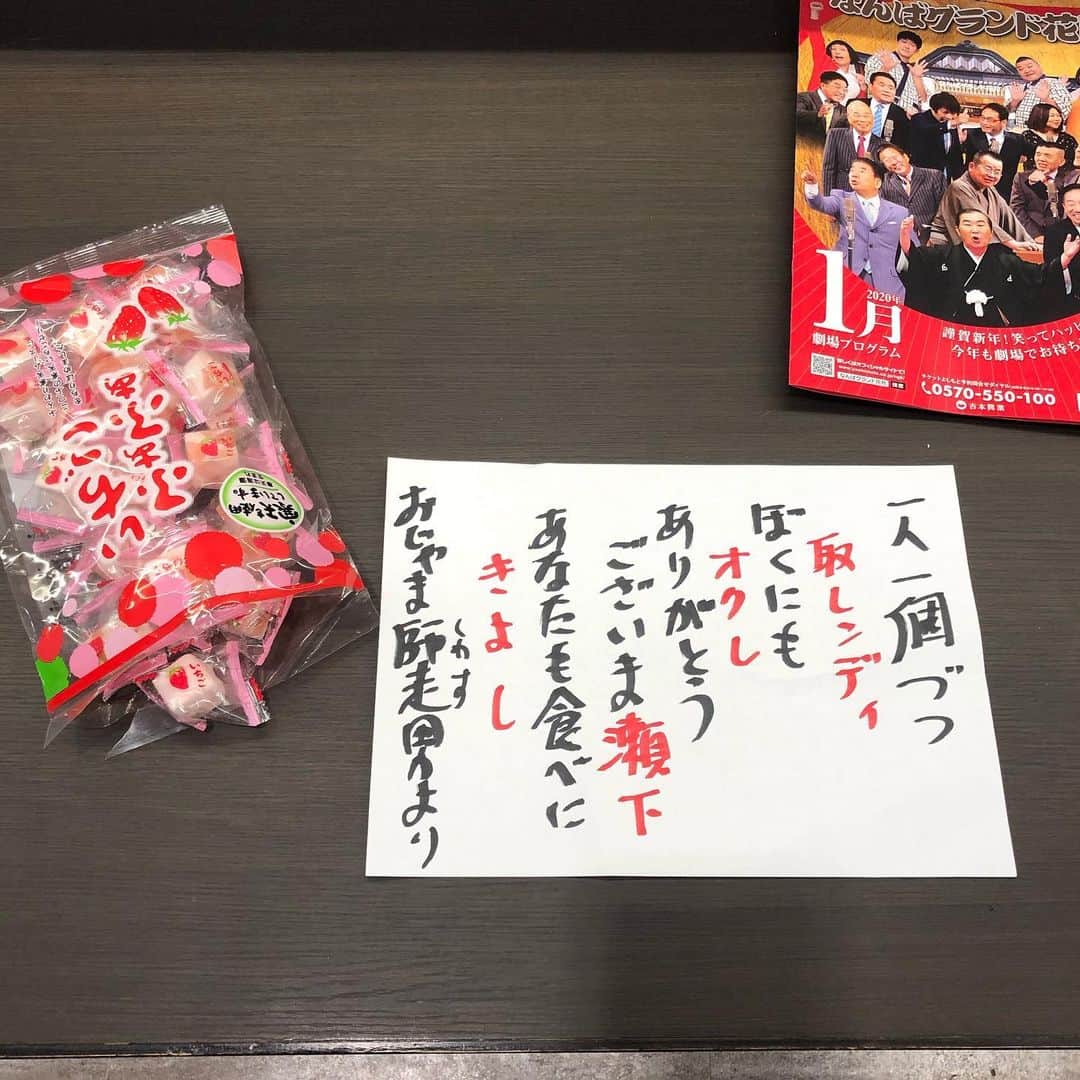 一人一個づつ
取レンディ
ぼくにも
オクレ
ありがとう
ございま瀬下
あなたも食べに
きよし
おじゃま師走男より
しわす
なんばグランド花
1月
2020年
劇場プログラム
謹賀新年!笑ってハッピ
今年も劇場でお待ち
0570-550-100
吉本興業
いちご
ふわふわ
果実使用
しています。
いちご